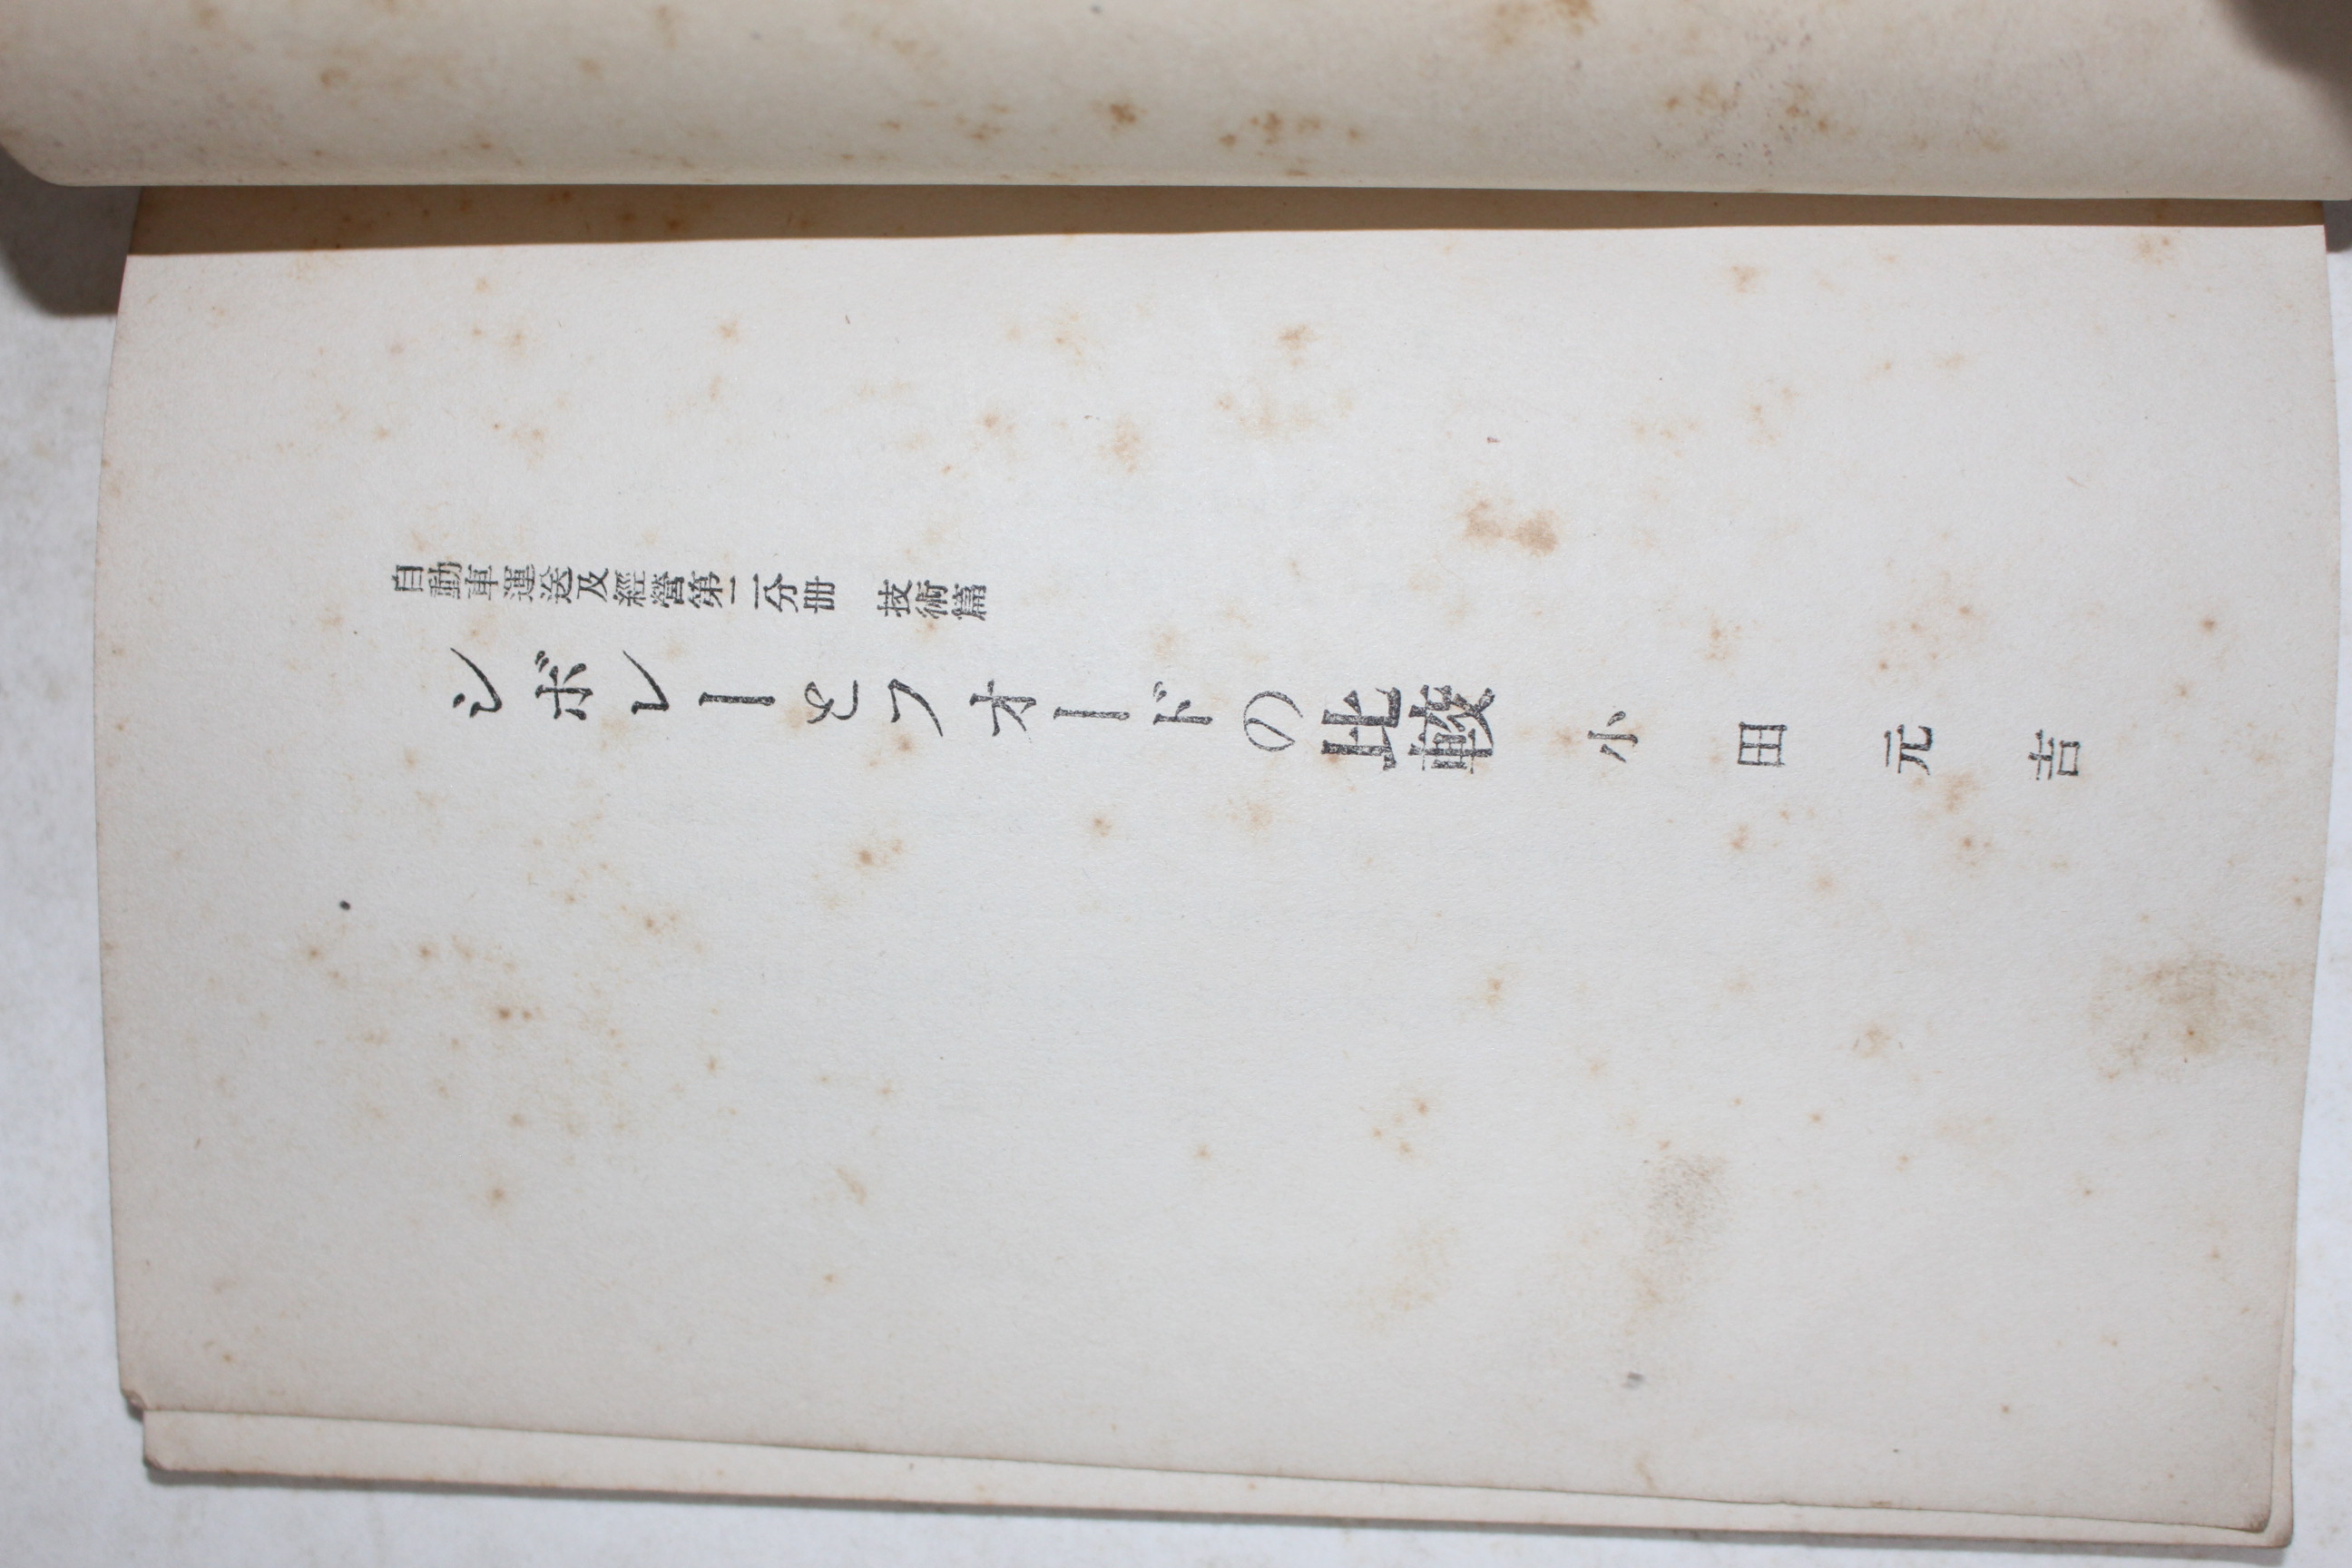 自動車運送及經營第二分冊　技術篇
シボレーとフオードの比較
小田元吉